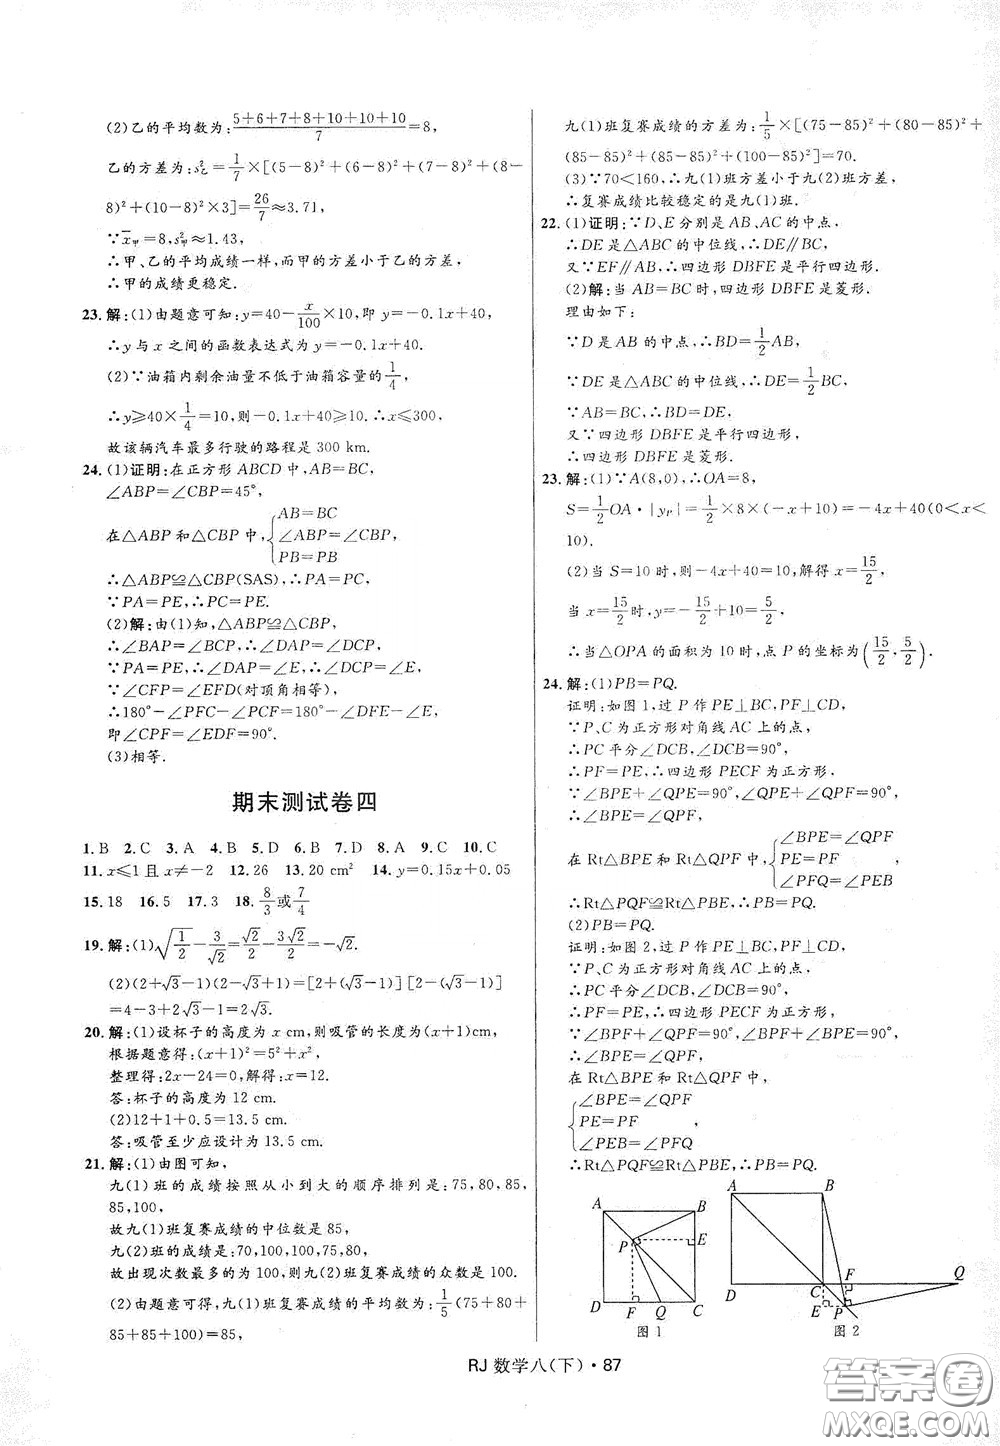 (2)乙的平均数为:(5+6+7+8+10+10+10)/7=8,
乙的方差为:s²乙=1/7×[(5-8)²+(6-8)²+(7-8)²+(8-
8)²+(10-8)²×3]=26/7≈3.71,
∵x̄甲=8,s²甲≈1.43,
∴甲、乙的平均成绩一样,而甲的方差小于乙的方差,
∴甲的成绩更稳定.
23.解:(1)由题意可知:y=40-x/100×10,即 y=-0.1x+40,
∴y 与 x 之间的函数表达式为 y=-0.1x+40.
(2)∵油箱内剩余油量不低于油箱容量的1/4,
∴y≥40×1/4=10,则-0.1x+40≥10.∴x≤300,
故该辆汽车最多行驶的路程是 300 km.
24.(1)证明:在正方形 ABCD 中,AB=BC,
∠ABP=∠CBP=45°,
在△ABP 和△CBP 中,{AB=BC
∠ABP=∠CBP,
PB=PB
∴△ABP≌△CBP(SAS),∴PA=PC,
∵PA=PE,∴PC=PE.
(2)解:由(1)知,△ABP≌△CBP,
∴∠BAP=∠BCP,∴∠DAP=∠DCP,
∵PA=PE,∴∠DAP=∠E,∴∠DCP=∠E,
∵∠CFP=∠EFD(对顶角相等),
∴180°-∠PFC-∠PCF=180°-∠DFE-∠E,
即∠CPF=∠EDF=90°.
(3)相等.
期末测试卷四
1.B 2.C 3.A 4.B 5.D 6.B 7.D 8.A 9.C 10.C
11.x≤1 且 x≠-2 12.26 13.20 cm² 14.y=0.15x+0.05
15.18 16.5 17.3 18.8/3或7/4
19.解:(1)√(1/2)-3/√2=√2/2-3√2/2=-√2.
(2)(2+√3-1)(2-√3+1)=[2+(√3-1)][2-(√3-1)]
=4-3+2√3-1=2√3.
20.解:(1)设杯子的高度为 x cm,则吸管的长度为(x+1)cm,
根据题意得:(x+1)²=5²+x²,
整理得:2x-24=0,解得:x=12.
答:杯子的高度为 12 cm.
(2)12+1+0.5=13.5 cm.
答:吸管至少应设计为 13.5 cm.
21.解:(1)由图可知,
九(1)班的成绩按照从小到大的顺序排列是:75,80,85,
85,100,
故九(1)班复赛成绩的中位数是 85,
九(2)班的成绩是:70,100,100,75,80,
故出现次数最多的为 100,则九(2)班复赛成绩的众数是 100.
(2)由题意可得,九(1)班复赛成绩的平均数为:1/5(75+80+
85+85+100)=85,
九(1)班复赛成绩的方差为:1/5×[(75-85)²+(80-85)²+
(85-85)²+(85-85)²+(100-85)²]=70.
(3)∵70<160,∴九(1)班方差小于九(2)班方差,
∴复赛成绩比较稳定的是九(1)班.
22.(1)证明:∵D、E 分别是 AB、AC 的中点,
∴DE 是△ABC 的中位线,∴DE∥BC,
又∵EF∥AB,∴四边形 DBFE 是平行四边形.
(2)解:当 AB=BC 时,四边形 DBFE 是菱形.
理由如下:
∵D 是 AB 的中点,∴BD=1/2AB,
∵DE 是△ABC 的中位线,∴DE=1/2BC,
∵AB=BC,∴BD=DE,
又∵四边形 DBFE 是平行四边形,
∴四边形 DBFE 是菱形.
23.解:(1)∵A(8,0),∴OA=8,
S=1/2OA·|yP|=1/2×8×(-x+10)=-4x+40(0<x<
10).
(2)当 S=10 时,则-4x+40=10,解得 x=15/2,
当 x=15/2时,y=-15/2+10=5/2.
∴当△OPA 的面积为 10 时,点 P 的坐标为(15/2,5/2).
24.解:(1)PB=PQ.
证明:如图 1,过 P 作 PE⊥BC,PF⊥CD,
∵P、C 为正方形对角线 AC 上的点,
∴PC 平分∠DCB,∠DCB=90°,
∴PF=PE,∴四边形 PECF 为正方形.
∴∠BPE+∠QPE=90°,∠QPE+∠QPF=90°,
在 Rt△PQF 和 Rt△PBE 中,{∠BPE=∠QPF
PE=PF
∠PFQ=∠PEB
∴Rt△PQF≌Rt△PBE,∴PB=PQ.
(2)PB=PQ.
证明:如图 2,过 P 作 PE⊥BC,PF⊥CD,
∵P、C 为正方形对角线 AC 上的点,
∴PC 平分∠DCB,∠DCB=90°,
∴PF=PE,∴四边形 PECF 为正方形,
∵∠BPF+∠QPF=90°,∠BPF+∠BPE=90°,
∴∠BPE=∠QPF,
在 Rt△PBE 和 Rt△PQF 中,
{∠BPE=∠QPF
PE=PF
∠PEB=∠PFQ
∴Rt△PQF≌Rt△PBE,∴PB=PQ.
A B
P E
D F Q C
图 1
A B
D C F Q
E P
图 2
RJ 数学八(下)·87
答案圈
MXQE.COM